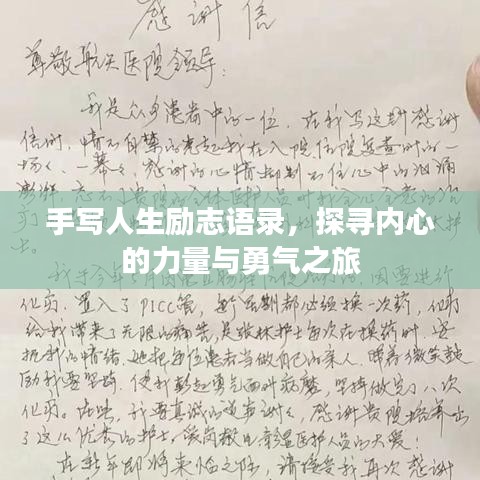 感谢信
尊敬航天医院领导:
我是众多患者中的一位,在我写这封感谢
信时,情不自禁的想起我在入院住院复查时的一
场、一幕、感谢的心情抑制不住心中的汹涌
手写人生励志语录,探寻内心
的力量与勇气之旅
化疗,置入了PICC管,每个星期都必须换一次药,化疗
给我带来了无限的痛苦,是张林护士每次在换药时,安
抚我的情绪,她把每位患者当做自己的亲人,带着微笑鼓
励我要坚强,使我鼓起勇气面对病魔,坚持做完了八次
化疗。在此,我要真诚的道声谢谢,感谢贵院培养出
了这么优秀的护士,爱岗敬业彰显医护人员的大爱!
在新年即将来临之际,请接受我再次感谢